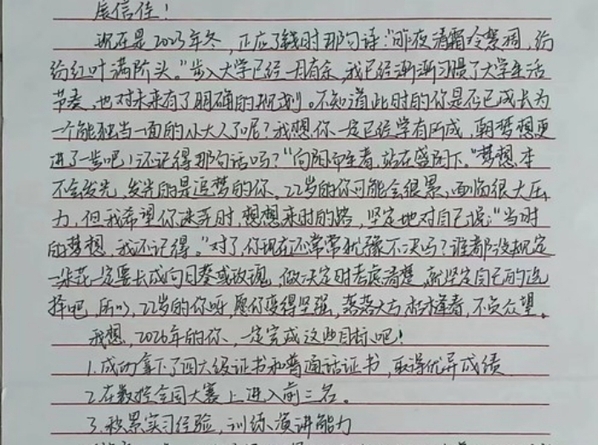 展信佳！
现在是2023年冬，正应了钱时那句诗：“昨夜清霜冷絮裯，纷
纷红叶满阶头。”步入大学已经一月有余，我已经渐渐习惯了大学生活
节奏，也对未来有了明确的规划。不知道此时的你是否已成长为
一个能独当一面的小大人了呢？我想你一定已经学有所成，朝梦想更
进了一步吧！还记得那句话吗？“向阳而生者，站在盛阳下。”梦想本
不会发光，发光的是追梦的你。22岁的你可能会很累，面临很大压
力，但我希望你迷茫时，想想来时的路，坚定地对自己说：“当时
的梦想，我还记得。”对了，你现在还常常犹豫不决吗？谁都没规定
一朵花一定要长成向日葵或玫瑰，做决定时考虑清楚，就坚定自己的选
择吧，所以，22岁的你呀，愿你变得坚强，落落大方 活着，不负众望。
我想，2026年的你，一定完成这些目标吧！
1.成功拿下了四六级证书和普通话证书，取得优异成绩
2.在数控全国大赛上进入前三名。
3.积累实习经验，训练演讲能力